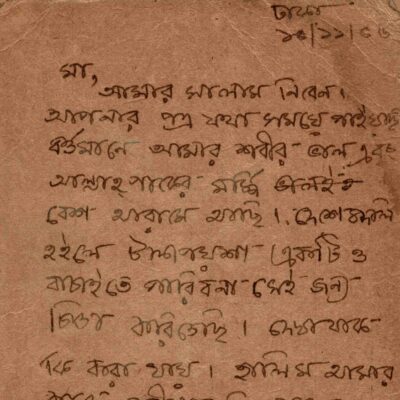 ঢাকা
১৫/১১/৫৬
মা,
আমার সালাম নিবেন।
আপনার পত্র যথা সময়ে পাইয়াছি
বর্ত্তমানে আমার শরীর ভাল এবং
আল্লাহ্ পাকের মর্জ্জি ভালই
বেশ আরামে আছি।
হইলে টাকা পয়সা একটি ও
বাচাইতে পারিবনা সেই জন্য
চিন্তা করিতেছি। দেখা যাক
কি করা যায়। হালিম আমার